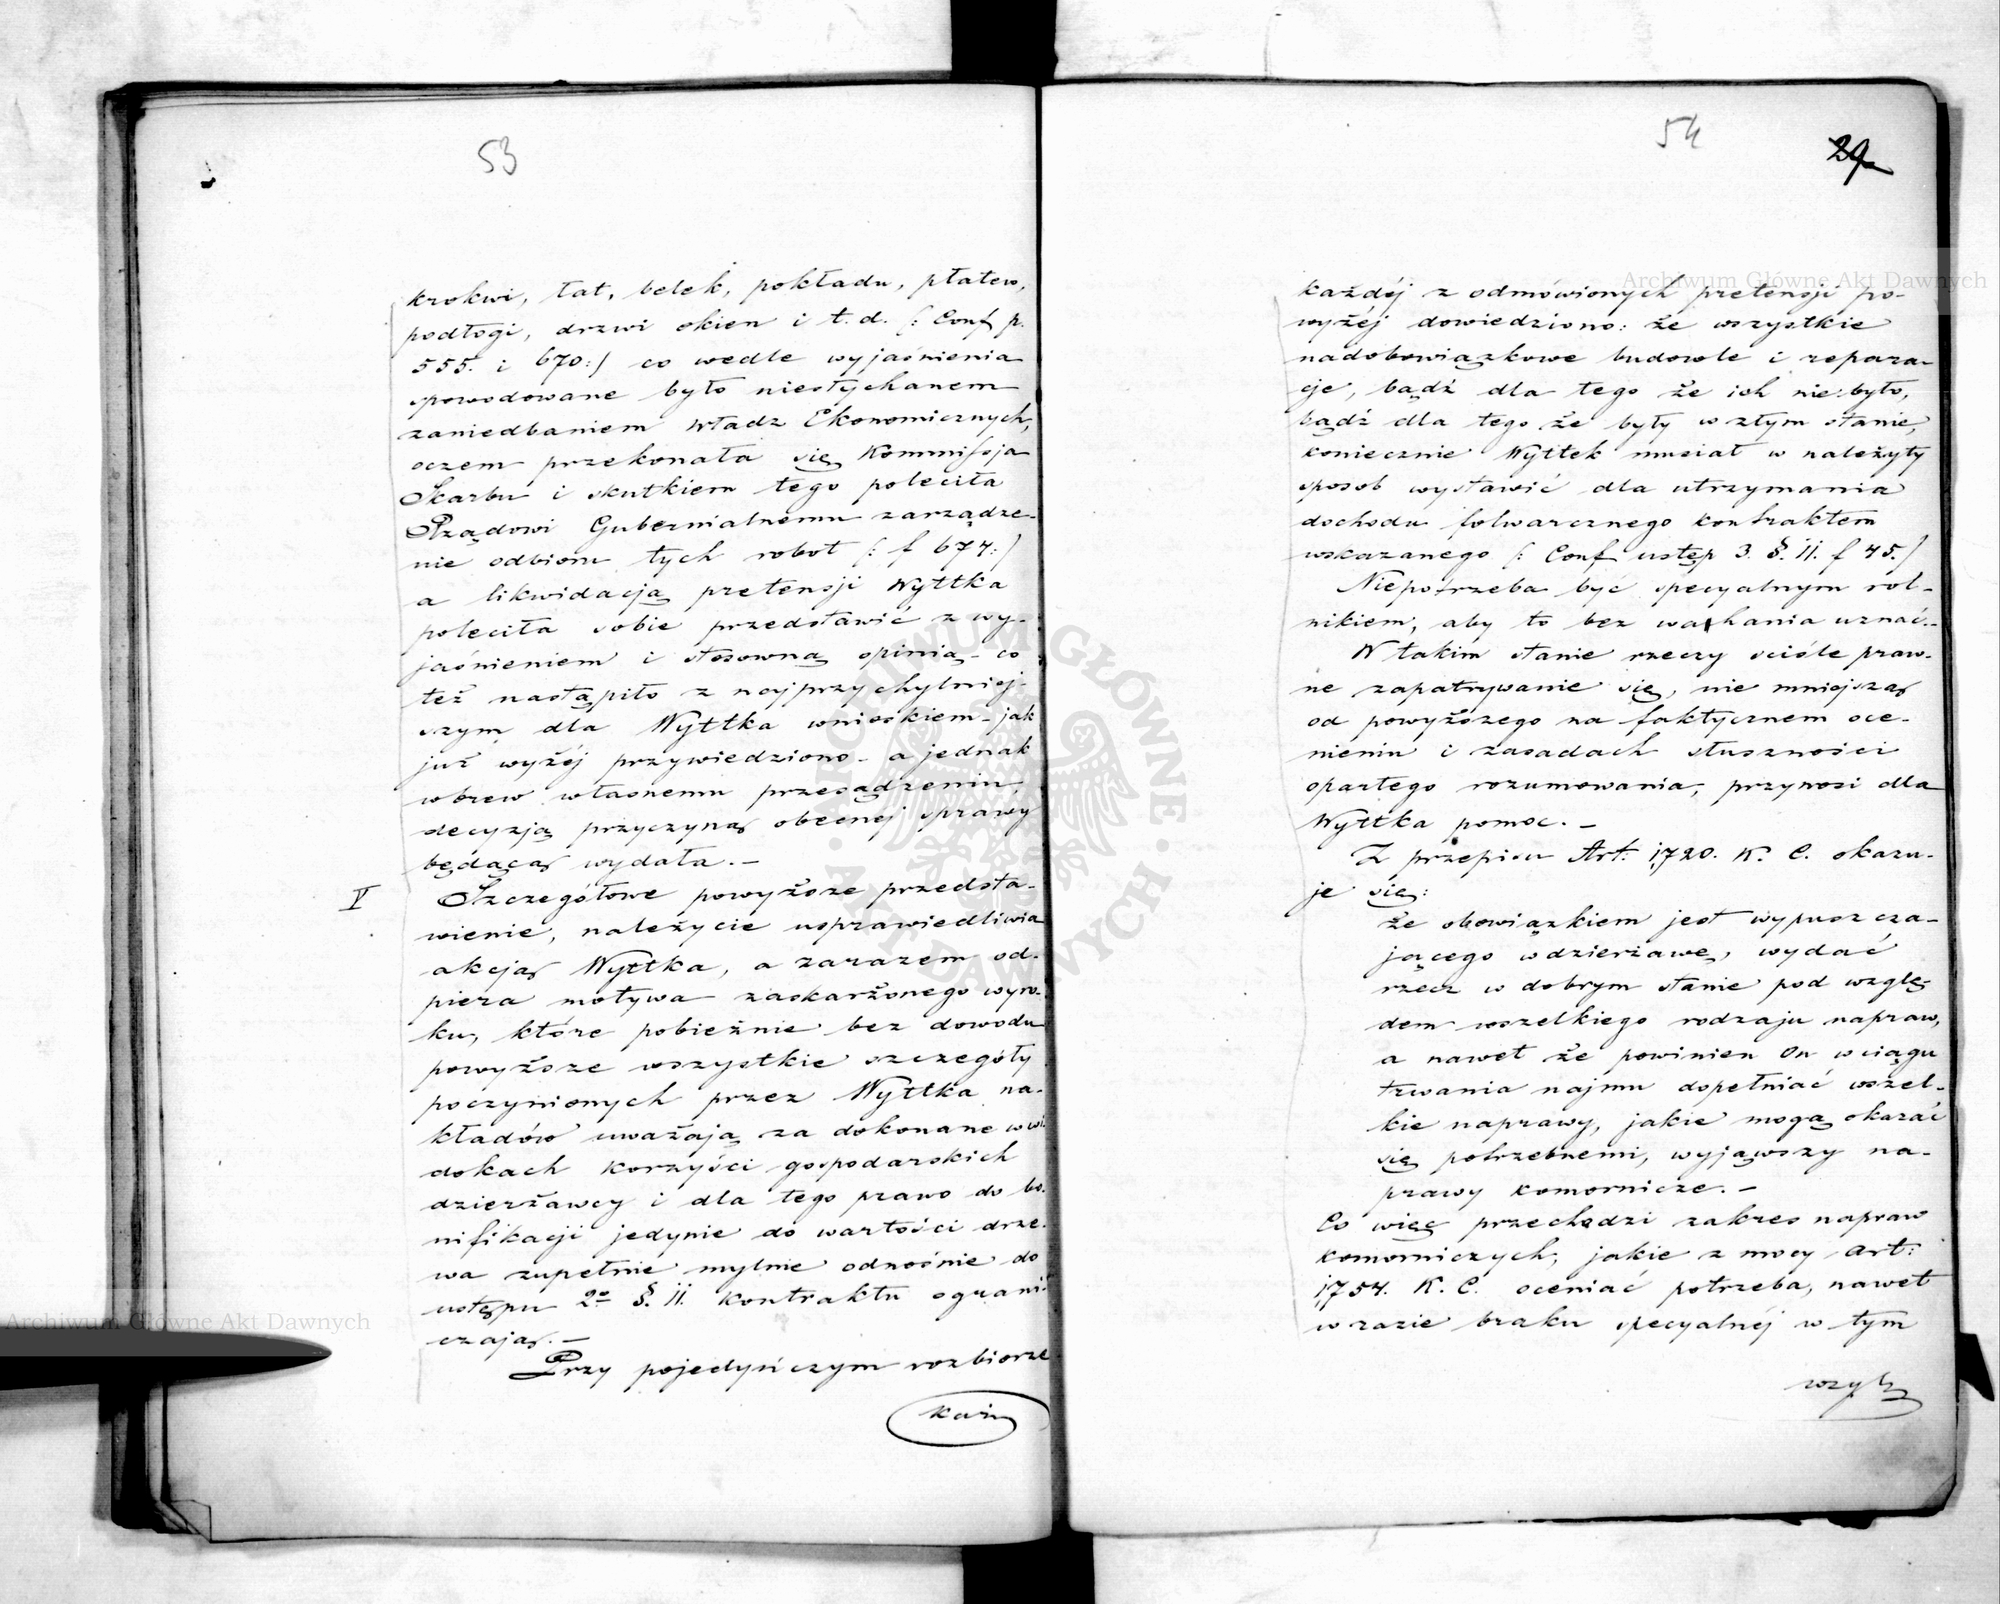 53
krokwi, łat, belek, pokładu, płatew,
podłogi, drzwi okien i t. d. /: Conf p.
555. i 670:/ co wedle wyjaśnienia
spowodowane było niesłychanem
zaniedbaniem władz Ekonomicznych,
oczem przekonała się Kommissja
Skarbu i skutkiem tego poleciła
Rządowi Gubernialnemu zarządze-
nie odbioru tych robot /: f 677:/
a likwidacją pretensji Wyttka
poleciła sobie przedstawić z wy-
jaśnieniem i stosowną opinią - co
też nastąpiło z najprzychylniej-
szym dla Wyttka wnioskiem - jak
już wyżéj przywiedziono - a jednak
wbrew własnemu przesądzeniu,
decyzją przyczyną obecnéj sprawy
będącą wydała. -
V Szczegółowe powyższe przedsta-
wienie, należycie usprawiedliwia
akcją Wyttka, a zarazem od-
piera motywa zaskarżonego wyro-
ku, które pobieżnie bez dowodu
powyższe wszystkie szczegóły
poczynionych przez Wyttka na-
kładów uważają za dokonane w wi-
dokach korzyści gospodarskich
dzierżawcy i dla tego prawo do bo-
nifikacji jedynie do wartości drze-
wa zupełnie mylnie odnośnie do
ustępu 2o §. 11. kontraktu ograni-
czają. -
Przy pojedyńczym rozbiorze
każd
54
29
każdéj z odmówionych pretensji po-
wyżéj dowiedziono: że wszystkie
nadobowiązkowe budowle i repara-
cje, bądź dla tego że ich nie było,
bądź dla tego że były w złym stanie,
koniecznie Wyttek musiał w należyty
sposob wystawić dla utrzymania
dochodu folwarcznego kontraktem
wskazanego /: Conf ustęp 3. §. 11. f 45./
Niepotrzeba być specyalnym rol-
nikiem, aby to bez wahania uznać. -
W takim stanie rzeczy sciśle praw-
ne zapatrywanie się, nie mniejszą
od powyższego na faktycznem oce-
nieniu i zasadach słuszności
opartego rozumowania, przynosi dla
Wyttka pomoc. -
Z przepisu Art: 1720. K. C. okazu-
je się:
że obowiązkiem jest wypuszcza-
jącego w dzierżawę, wydać
rzecz w dobrym stanie pod wzglę-
dem wszelkiego rodzaju napraw,
a nawet że powinien On w ciągu
trwania najmu dopełniać wszel-
kie naprawy, jakie mogą okazać
się potrzebnemi, wyjąwszy na-
prawy komornicze. -
Co więc przechodzi zakres napraw
komorniczych, jakie z mocy Art:
1754. K. C. oceniać potrzeba, nawet
w razie braku specyalnéj w tym
Archiwum Główne Akt Dawnych
Archiwum Główne Akt Dawnych
ARCHIWUM GŁÓWNE · AKT DAWNYCH ·